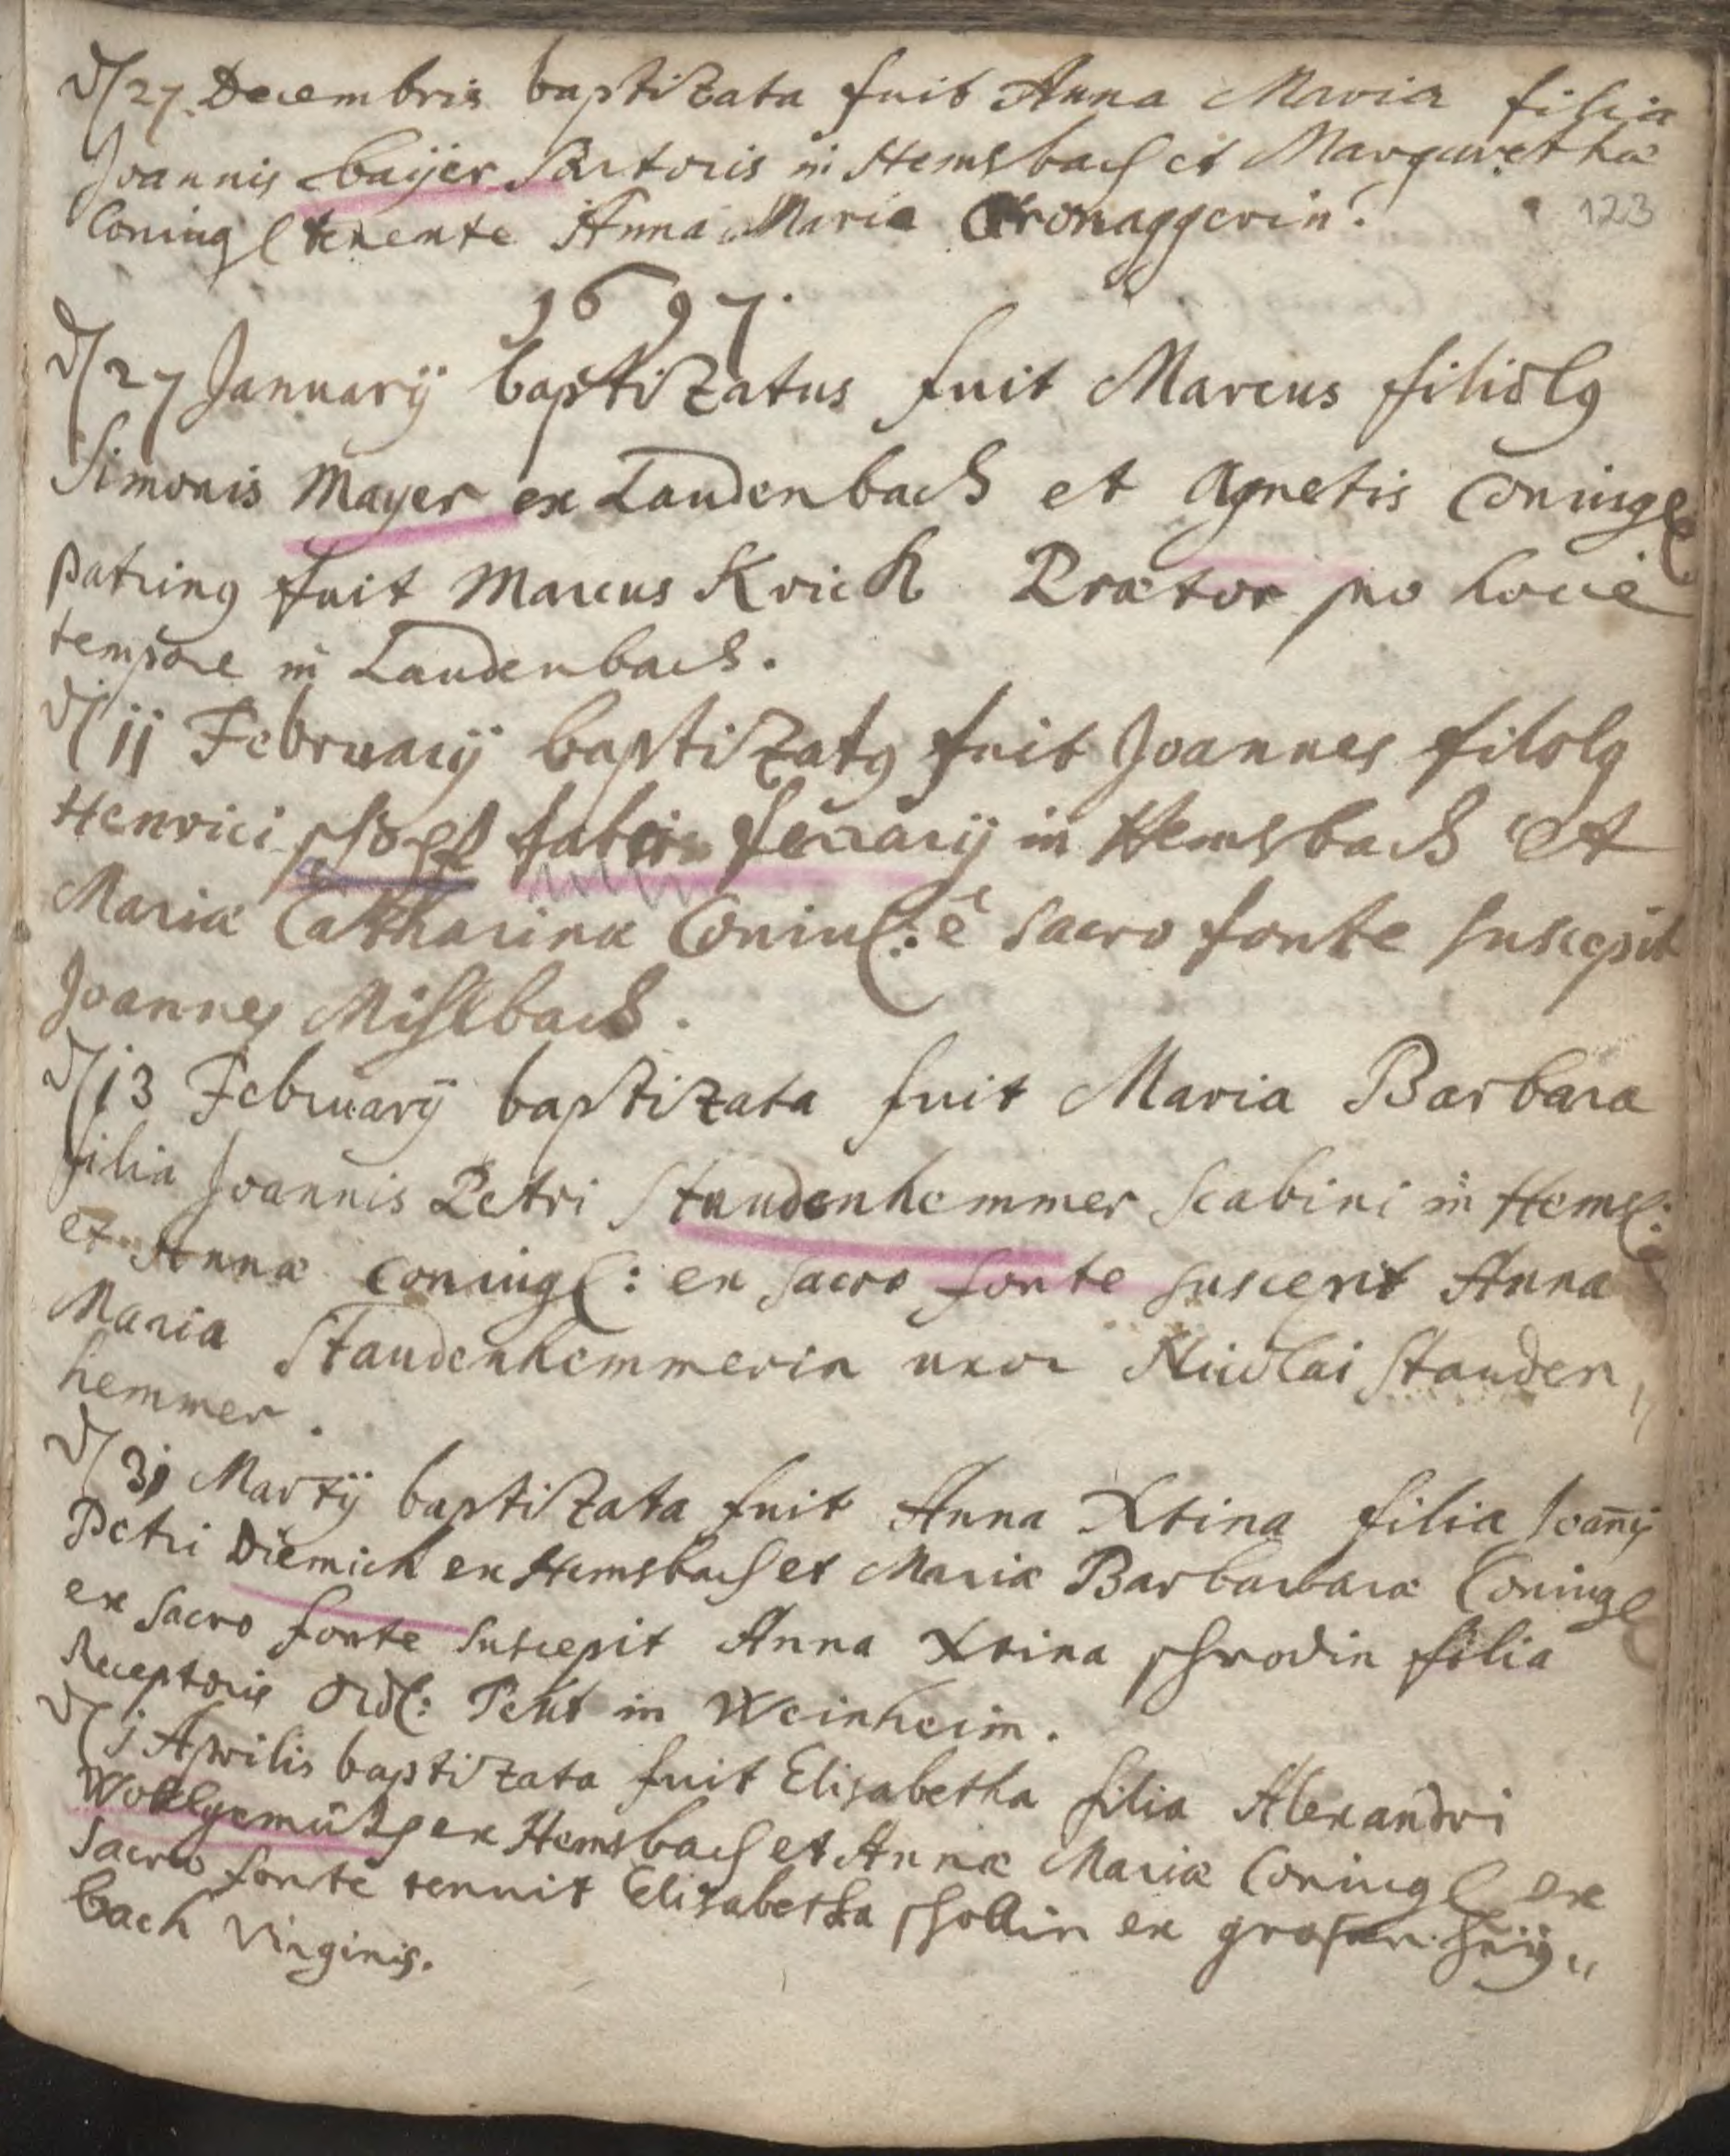 d/27 Decembris baptizata fuit Anna Maria filia
Joannis baijer Sartoris in Hemsbach et Margarethæ
Coniug tenente Anna Maria
123
1697.
d/27 Januarij baptizatus fuit Marcus filiolg
Simonis Mayer ex Laudenbach et Agnetis Coniug
patring fuit Marcus Krick Prætor pro hocce
tempore in Laudenbach.
d/11 February baptizatg fuit Joannes filolg
Henrici fabri ferrarij in Hemsbach et
Mariæ Catharinæ Coniu: è sacro fonte suscepit
Joannes Mislbach.
d/13 February baptizata fuit Maria Barbara
filia Joannis Petri Staudenhemmer Scabini in Hems:
et Annæ Coniug: ex sacro fonte suscepit Anna
Maria Staudenhemmerin uxor Nicolai Stauden,,
hemmer.
d/31 Martij baptizata fuit Anna Xtina filia Joan̄is
Petri Diemick ex Hemsbach et Mariæ Barbarbaræ Coniug
ex sacro fonte suscepit Anna Xtina schrodin filia
Receptoris in Weinheim.
d/1 Aprilis baptizata fuit Elisabetha filia Alexandri
Wollgemuth ex Hemsbach et Annæ Mariæ Coniug ex
sacro fonte tenuit Elisabetha schollin ex grosen
bach Virginis.